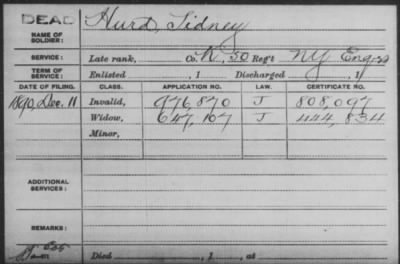 DEAD
NAME OF SOLDIER: Hurd, Sidney
SERVICE: Late rank, Co. K, 50 Reg't NY Engrs
TERM OF SERVICE: Enlisted , 1 Discharged , 1
DATE OF FILING. CLASS. APPLICATION NO. LAW. CERTIFICATE NO.
1890, Dec. 11 Invalid, 976,870 J 808,097
Widow, 647,107 J 444,834
Minor,
ADDITIONAL SERVICES:
REMARKS:
Died , 1 , at